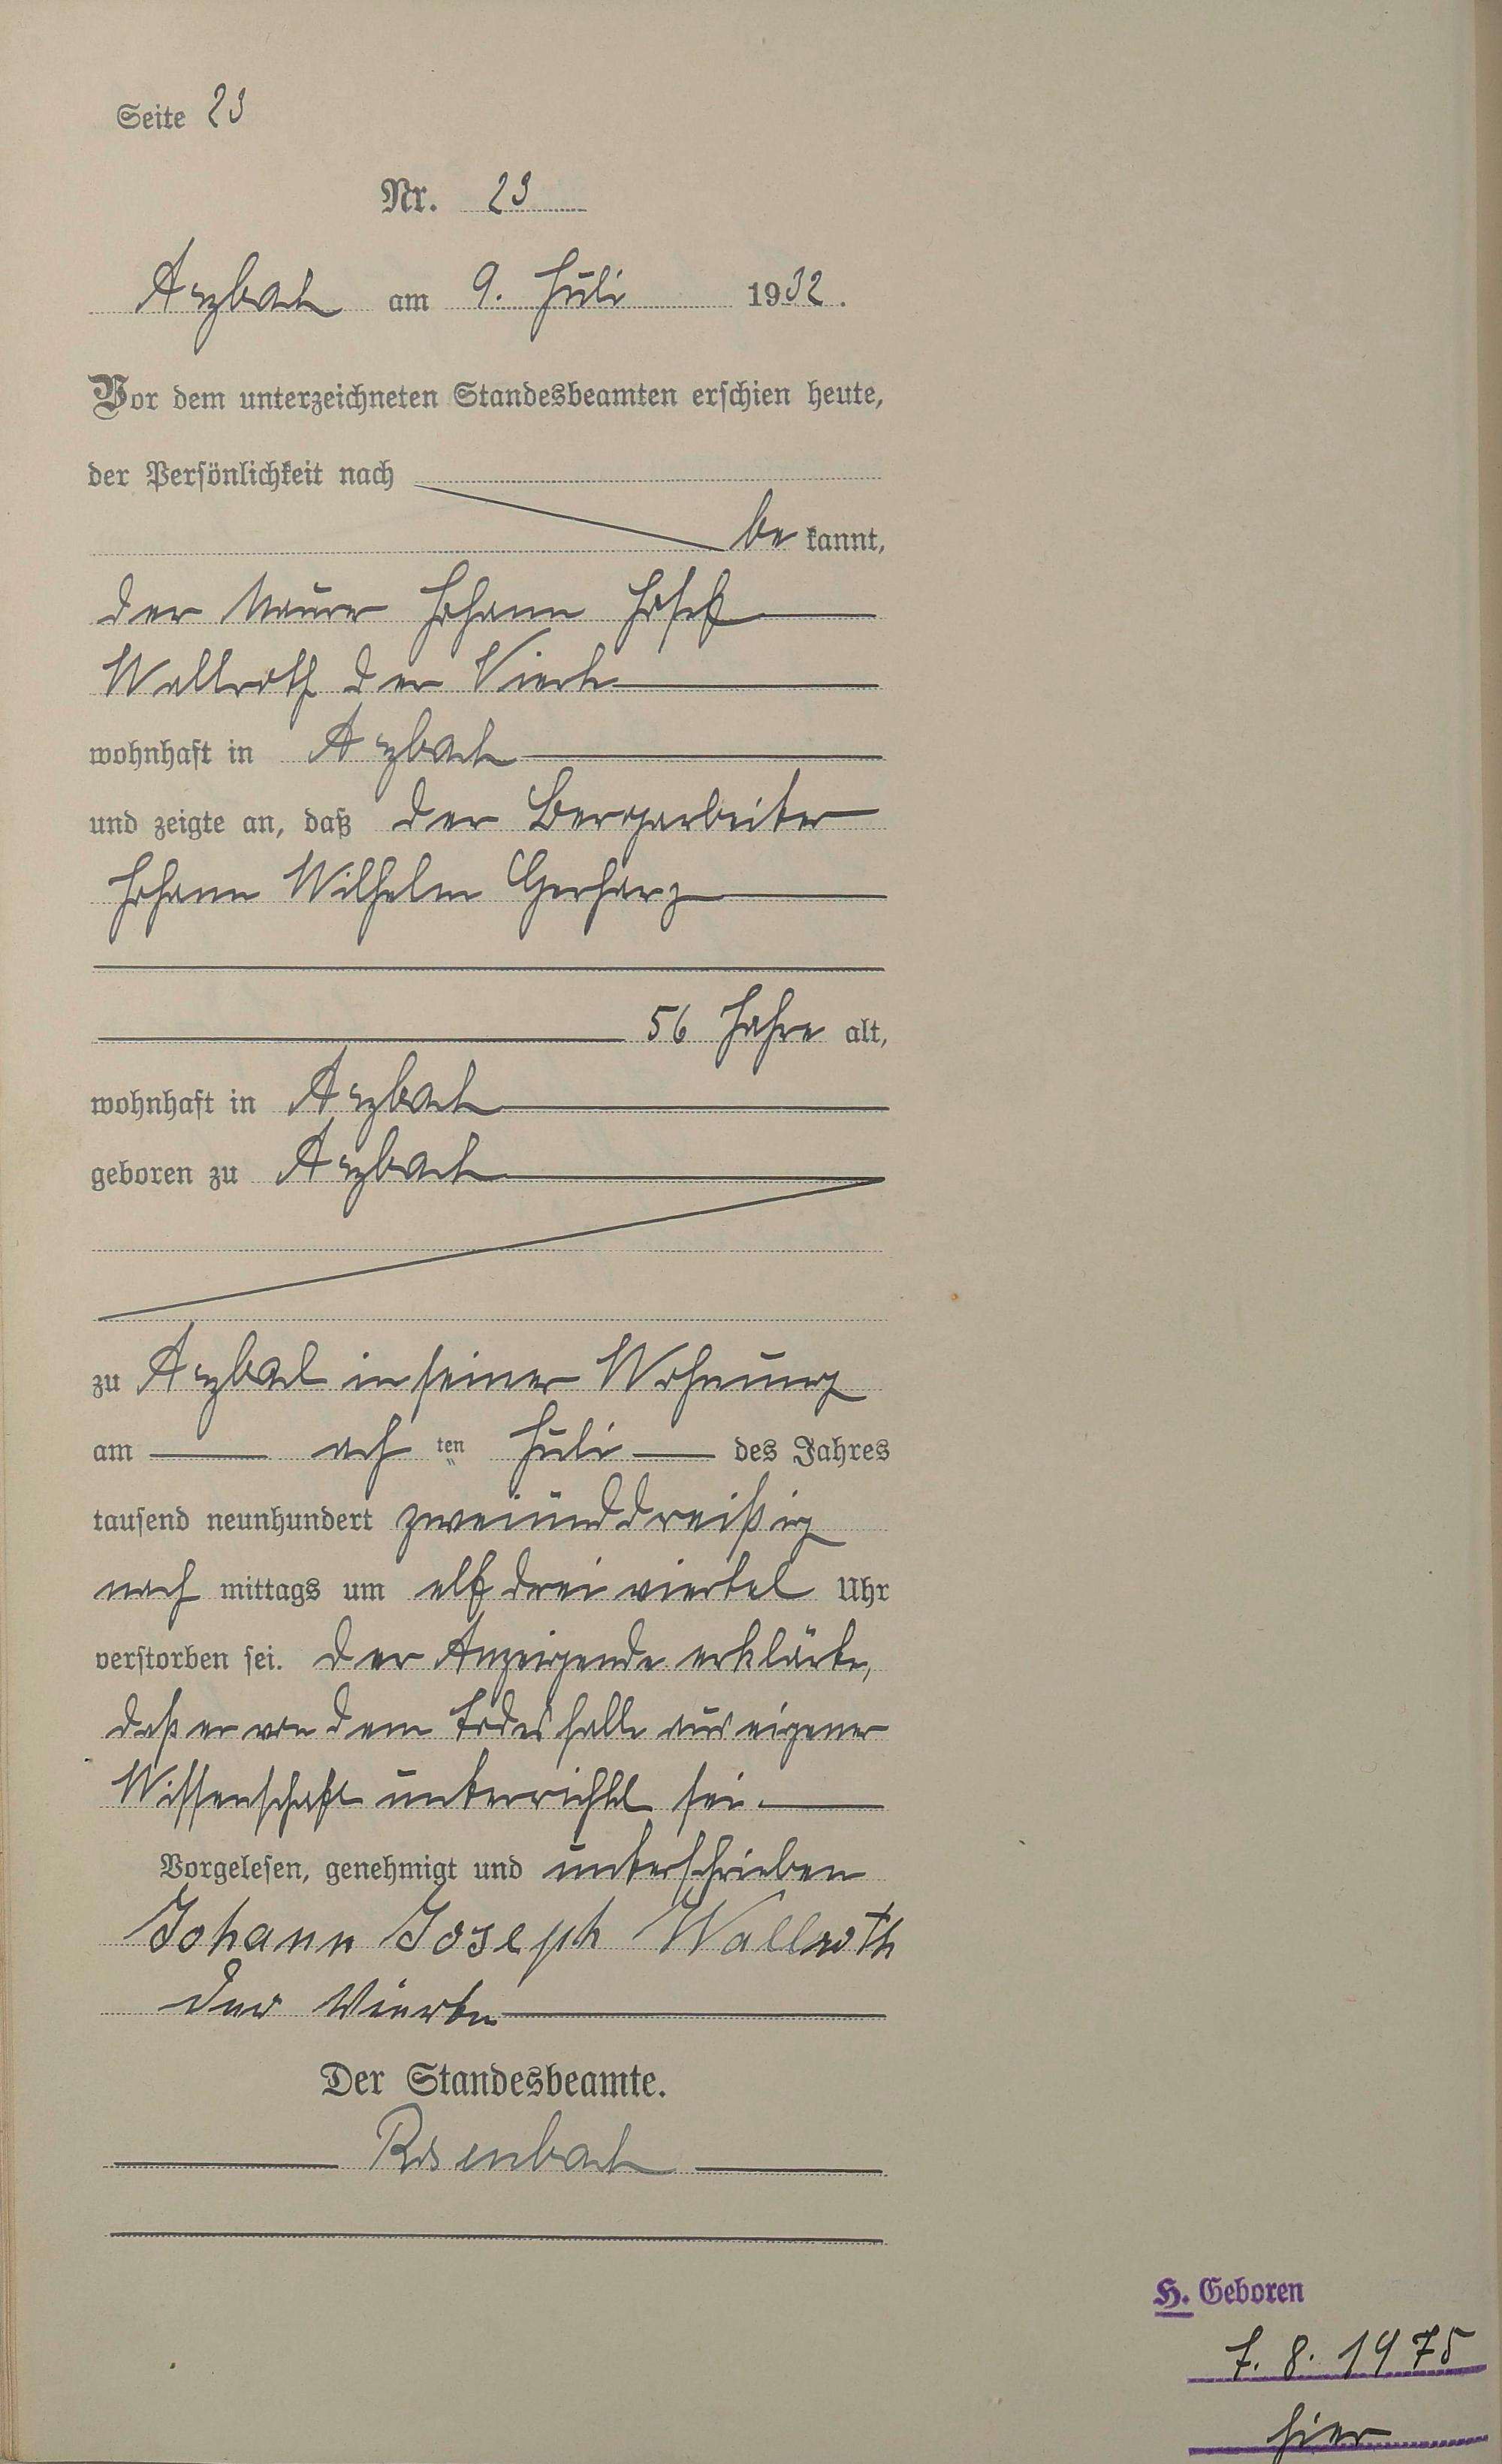 Seite 23
Nr. 23
Arzbach am 9. Juli 1932.
Vor dem unterzeichneten Standesbeamten erschien heute,
der Persönlichkeit nach
be kannt,
der Maurer Johann Josef
Wallroth der Vierte
wohnhaft in Arzbach
und zeigte an, daß der Bergarbeiter
Johann Wilhelm Gerharz
56 Jahre alt,
wohnhaft in Arzbach
geboren zu Arzbach
zu Arzbach in seiner Wohnung
am ach ten Juli des Jahres
tausend neunhundert zweiunddreißig
nach mittags um elf dreiviertel Uhr
verstorben sei. Der Anzeigende erklärte,
daß er von dem Todesfalle aus eigener
Wissenschaft unterrichtet sei.
Vorgelesen, genehmigt und unterschrieben
Johann Joseph Wallroth
der Vierte
Der Standesbeamte.
Rosenbach
H. Geboren
7. 8. 1975
hier